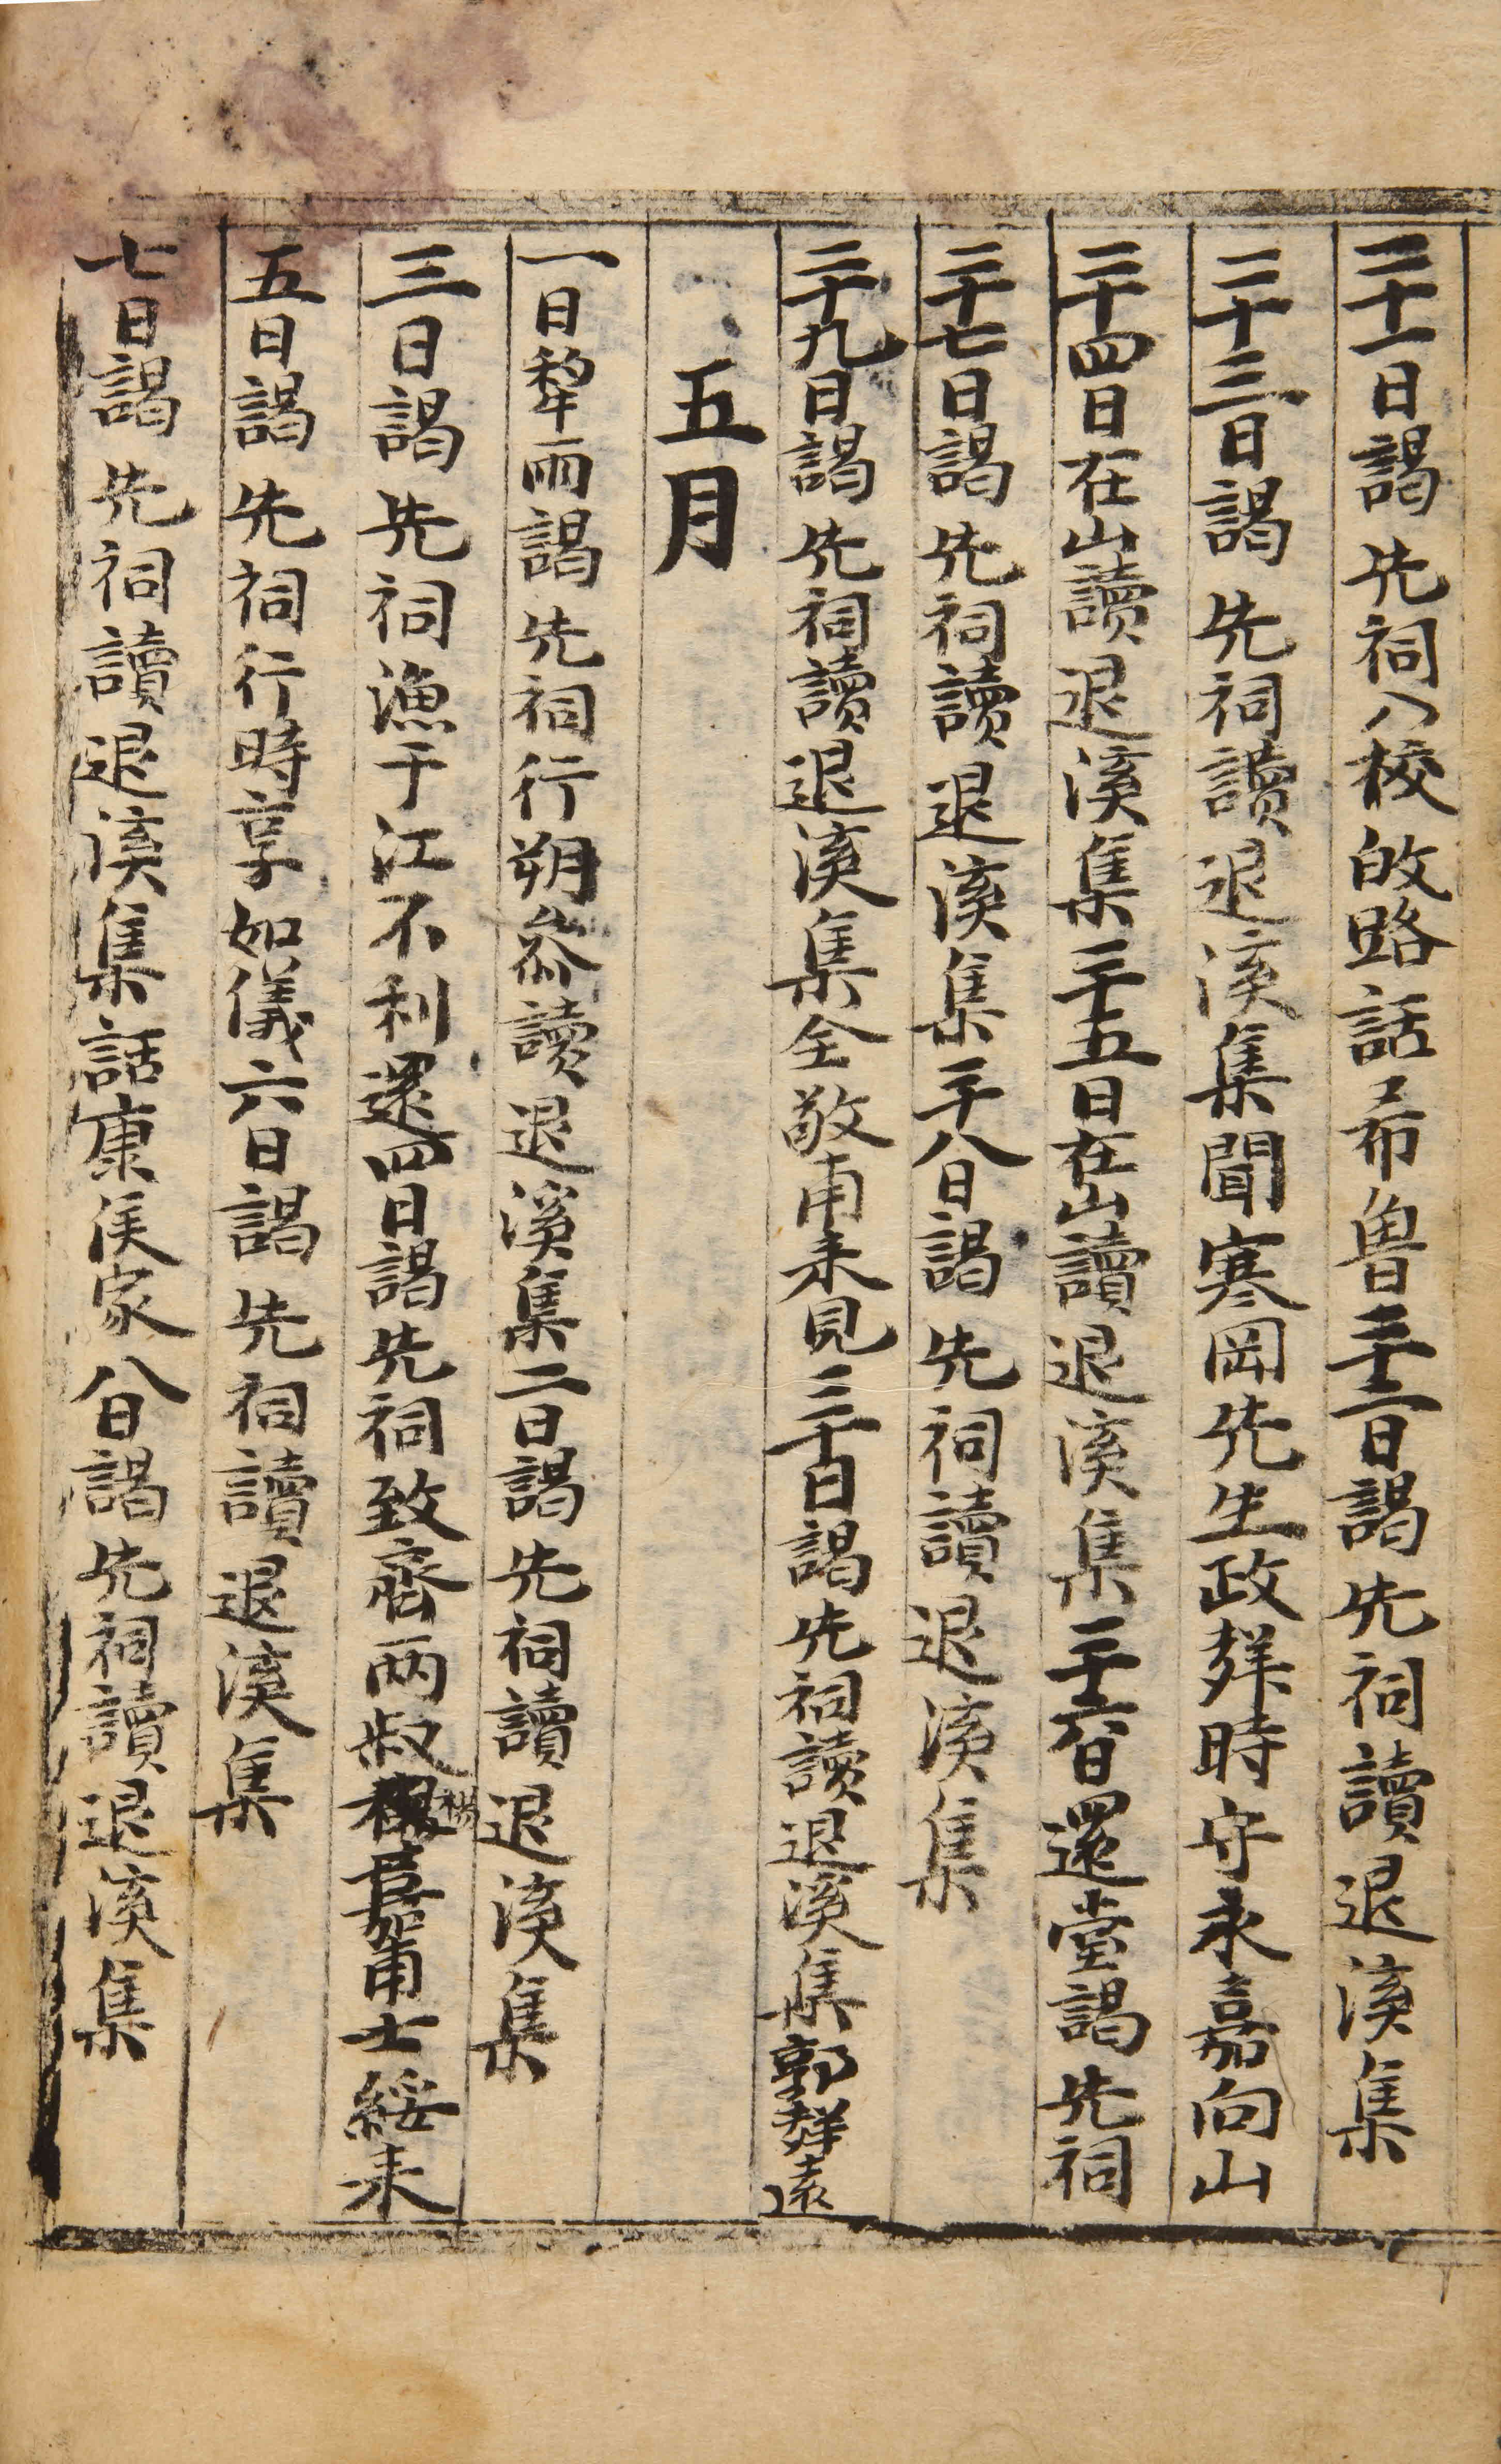 二十一日謁 先祠入校改路話希魯二十二日謁先祠讀退溪集
二十三日謁 先祠讀退溪集聞寒岡先生政辭時守永嘉向山
二十四日在山讀退溪集二十五日在山讀退溪集二十六日還堂謁先祠
二十七日謁 先祠讀退溪集二十八日謁 先祠讀退溪集
二十九日謁 先祠讀退溪集全敬甫來見三十日謁先祠讀退溪集郭靜遠
五月
一日犂雨謁 先祠行朔參讀退溪集二日謁先祠讀退溪集
三日謁 先祠漁于江不利還四日謁先祠致齋兩叔嘉甫士綏來
五日謁 先祠行時享如儀六日謁 先祠讀退溪集
七日謁 先祠讀退溪集話康侯家八日謁先祠讀退溪集